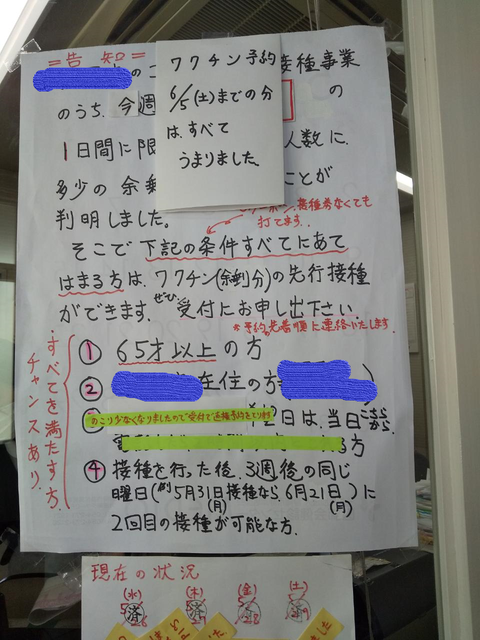 =告知=
のこ 接種事業
のうち、今週 の
1日間に限 人数に、
多少の余剰 ことが
判明しました。
ワクチン予約
6/5(土)までの分
は、すべて
うまりました。
接種券なくても
打てます。
そこで下記の条件すべてにあて
はまる方は、ワクチン(余剰分)の先行接種
ができます。ぜひ受付にお申し出下さい。
※予約先着順に連絡いたします。
すべてを満たす方、
チャンスあり。
① 65才以上の方
② 在住の方
のこり少なくなりましたので受付で直接予約をとります
2日は、当日こちらから、
る方
④ 接種を行った後、3週後の同じ
曜日(例 5月31日(月)接種なら6月21日(月))に
2回目の接種が可能な方。
現在の状況
(水) (木) (金) (土)
済 済 済 済